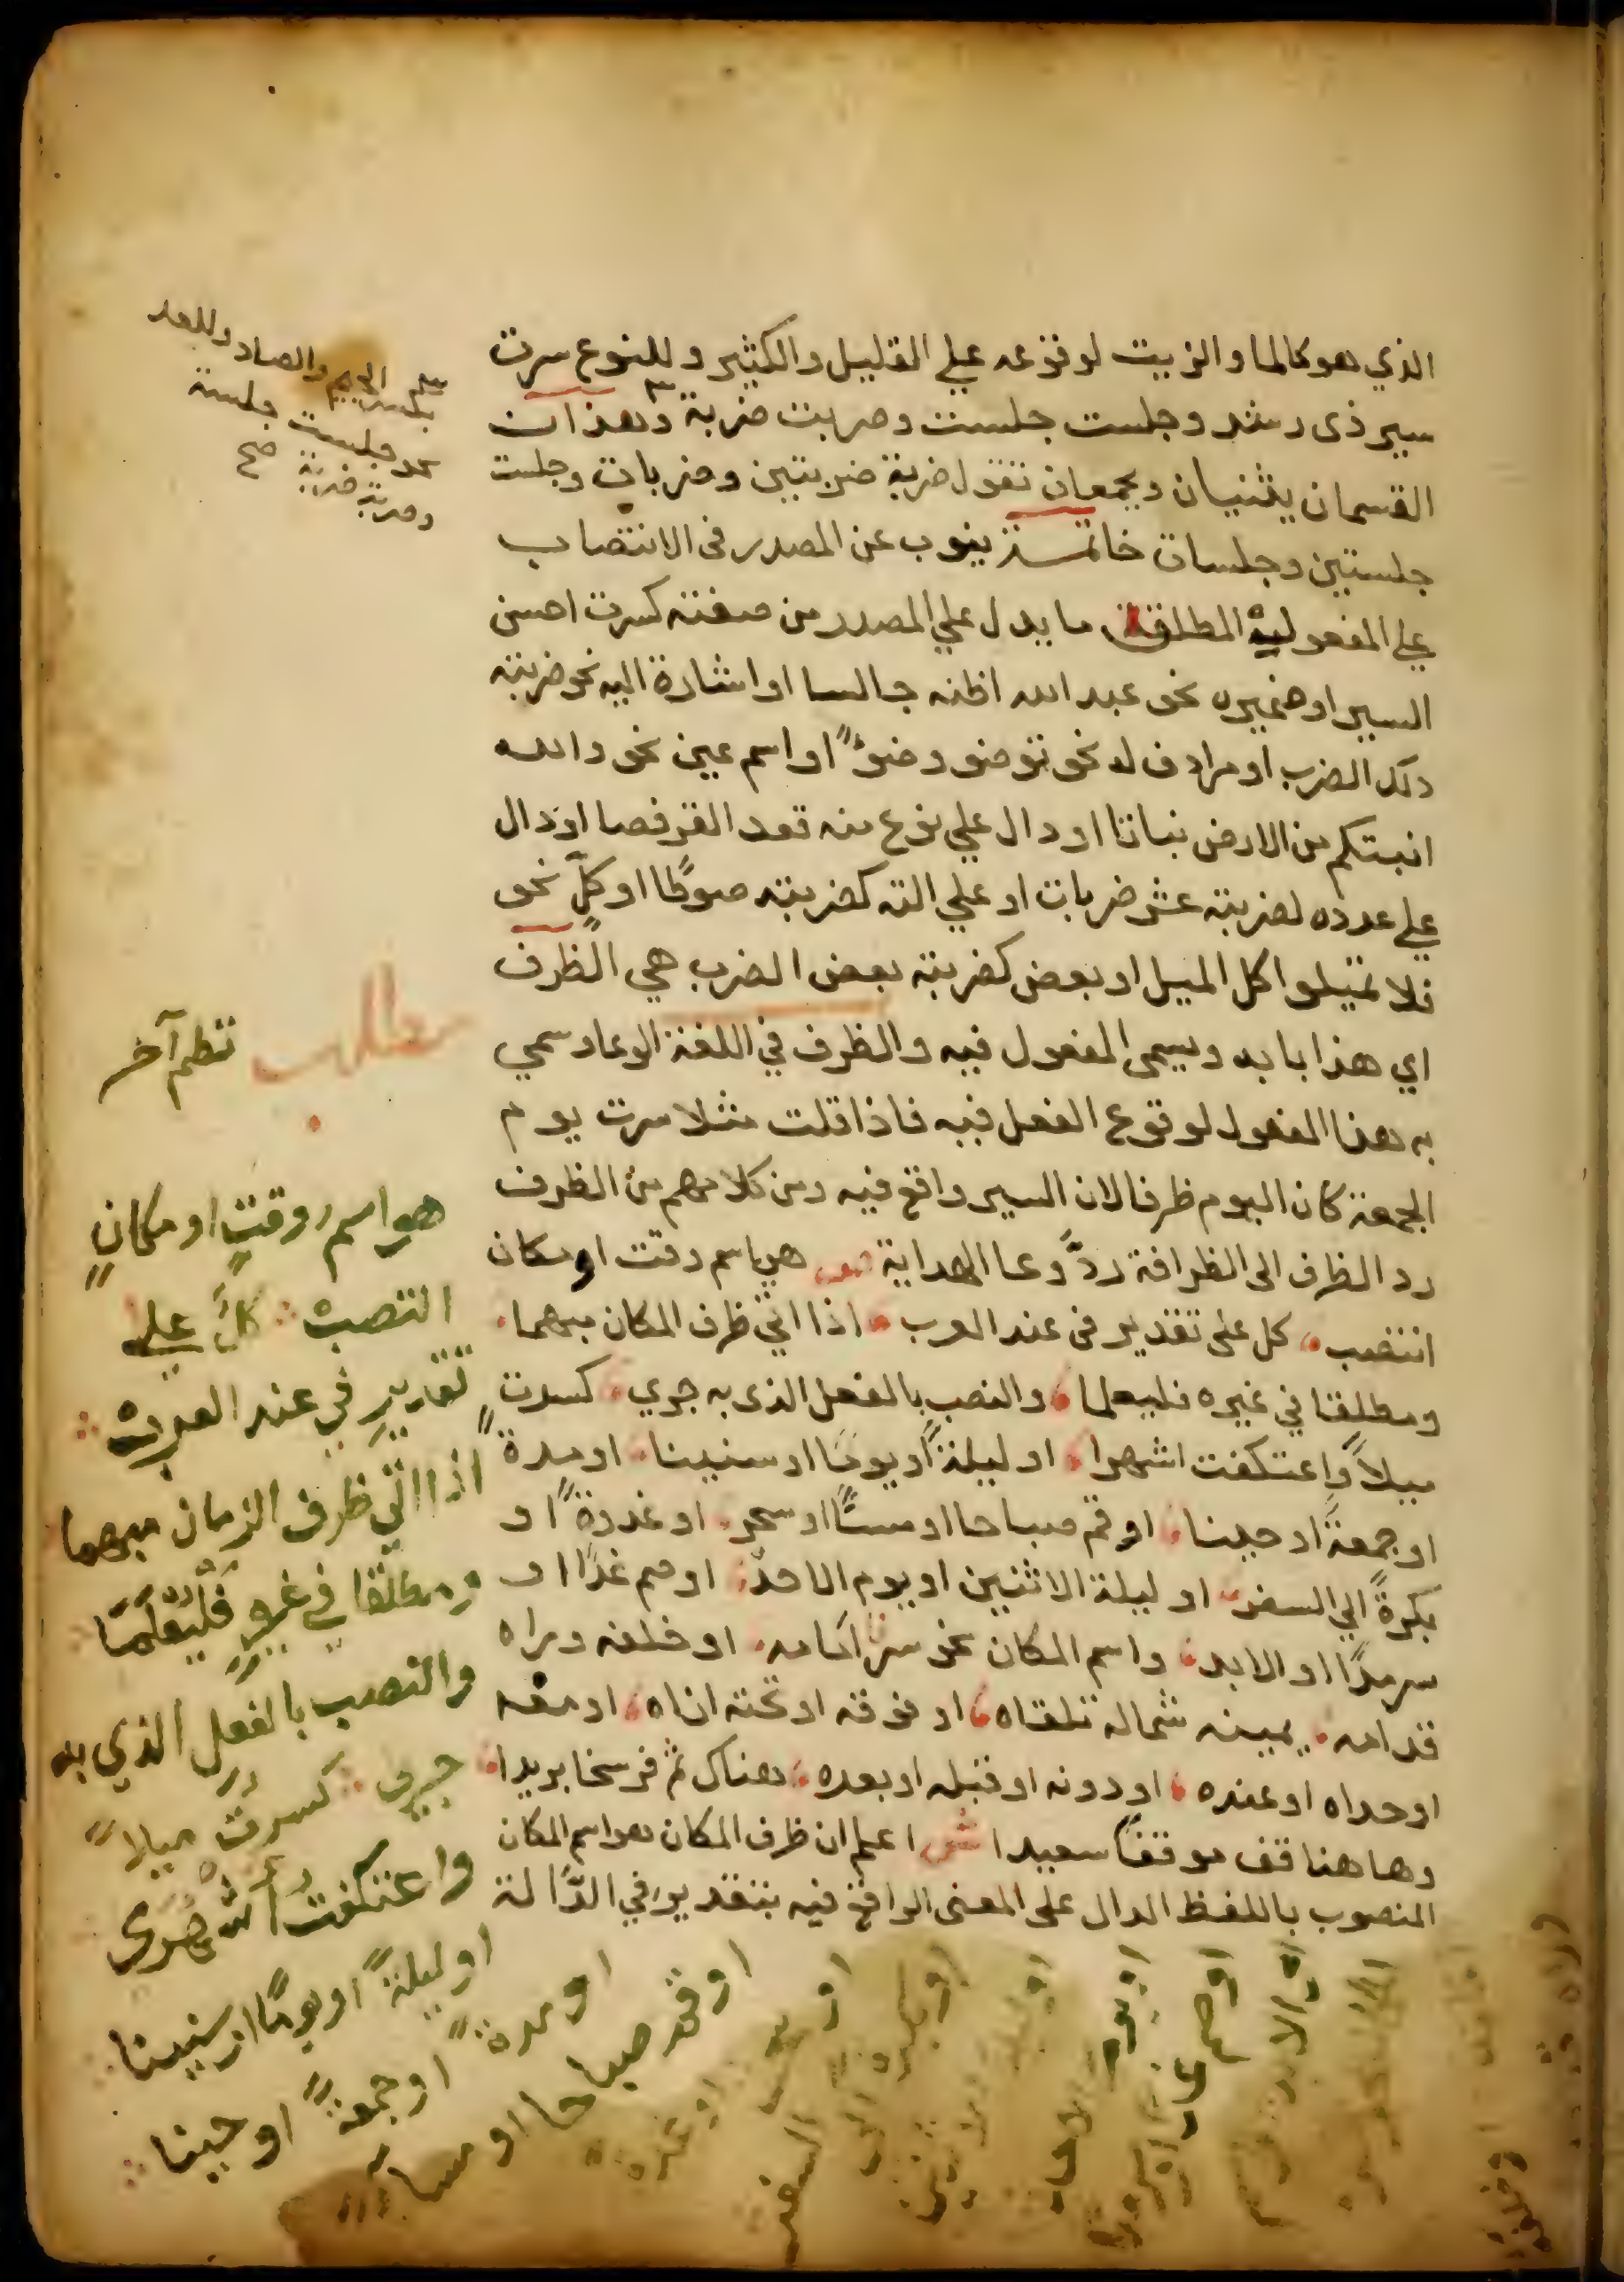 الذي هو كالما والزيت لوقوعه علي القليل والكثير وللنوع سرت
سير ذى رشد وجلست جلست وضربت ضربة وهذان
القسمان يثنيان ويجمعان تقول ضربة ضربتين وضربات وجلست
جلستين وجلسات خاتمة ينوب عن المصدر فى الانتصاب
علي المفعولية المطلقة ما يدل علي المصدر من صفته كسرت احسن
السير او ضميره نحو عبد الله اظنه جالسا او اشارة اليه نحو ضربته
ذلك الضرب او مرادف له نحو توضو وضوًا او اسم عين نحو والله
انبتكم من الارض نباتا او دال علي نوع منه قعد القرفصا او دال
علي عدده لضربته عشر ضربات او علي الته كضربته صوطا او كلٍ نحو
فلا تميلوا كل الميل او بعض كضربته بعض الضرب هي الظرف
اي هذا بابه ويسمى المفعول فيه والظرف في اللغة الوعا وسمي
به هذا المفعول لوقوع الفعل فيه فاذا قلت مثلا سرت يوم
الجمعة كان اليوم ظرفا لان السير واقع فيه ومن كلامهم من الظرف
رد الظرف الى الظرافة ردّ وعا الهداية ص هو اسم وقت او مكان
انتصب كل على تقدير فى عند العرب اذا اتي ظرف المكان مبهما
ومطلقا في غيره فليعلما والنصب بالفعل الذى به جري كسرت
ميلاً واعتكفت اشهرا او ليلةً او يومًا او سنينا او مدة
او جمعةً او حينا او قم صباحا او مساً او سحر او غدوةً او
بكرةً الي السفر او ليلة الاثنين او يوم الاحد او صم غدًا او
سرمدًا او الابد واسم المكان نحو سر امامه او خلفه وراه
قدامه يمينه شماله تلقاه او فوقه او تحته ازاه او معه
او حداه او عنده او دونه او قبله او بعده هناك ثم فرسخا بريدا
وها هنا قف موقفاً سعيدا ش اعلم ان ظرف المكان هو اسم المكان
المنصوب باللفظ الدال على المعنى الواقع فيه بتقدير في الدّالة
بكسر الجيم والضاد وللعد
نحو جلست جلسة
وضربة ضربة صح
مطلب
نظم آخر
هو اسم وقتٍ او مكانٍ
انتصب كلٌ علي
تقدير في عند العرب
اذا اتي ظرف الزمان مبهما
ومطلقا في غيره فليعلما
والنصب بالفعل الذي به
جرى كسرت ميلاً
واعتكفت اشهرى
او ليلةً او يومًا او سنينا
او مدةً او جمعةً او حينا
او قم صباحا او مسا
او
او غدوة
او بكرة الى
السفر
او يوم
الاحد
او صم غدا
او سرمدا
او الابد